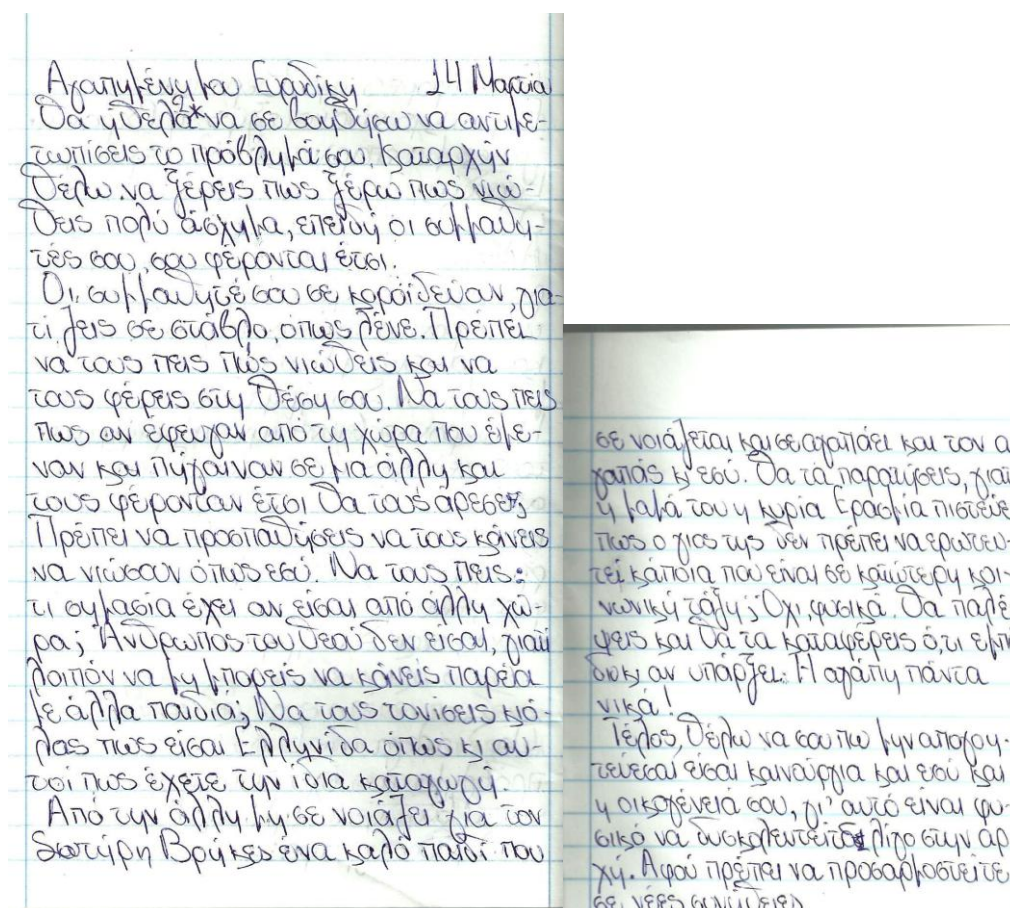 Αγαπημένη μου Ευρυδίκη 14 Μαρτίου
Θα ήθελα να σε βοηθήσω να αντιμε-
τωπίσεις το πρόβλημά σου. Καταρχήν
θέλω να ξέρεις πως ξέρω πως νιώ-
θεις πολύ άσχημα, επειδή οι συμμαθη-
τές σου, σου φέρονται έτσι.
Οι συμμαθητέ σου σε κοροϊδεύαν, για-
τί ζεις σε στάβλο, όπως λένε. Πρέπει
να τους πεις πώς νιώθεις και να
τους φέρεις στη θέση σου. Να τους πεις
πως αν έφευγαν από τη χώρα που έμε-
ναν και πήγαιναν σε μια άλλη και
τους φέρονταν έτσι θα τους άρεσε;
Πρέπει να προσπαθήσεις να τους κάνεις
να νιώσουν όπως εσύ. Να τους πεις:
τι σημασία έχει αν είσαι από άλλη χώ-
ρα; Άνθρωπος του θεού δεν εισαι, γιατί
λοιπόν να μη μπορείς να κάνεις παρέα
με άλλα παιδιά; Να τους τονίσεις κιό-
λας πως είσαι Ελληνίδα όπως κι αυ-
τοί πως έχετε την ίδια καταγωγή.
Από την άλλη μη σε νοιάζει για τον
Σωτήρη Βρήκες ένα καλό παιδί που
σε νοιάζεται και σε αγαπάει και τον α
γαπάς κι εσύ. Θα τα παρατήσεις, γιατί
η μαμά του η κυρία Ερασμία πιστεύε
πως ο γιος της δεν πρέπει να ερωτευ-
τεί κάποια που είναι σε κατώτερη κοι-
νωνική τάξη; Όχι, φυσικά. Θα παλέ
ψεις και θα τα καταφέρεις ό,τι εμπό
διο κι αν υπάρξει. Η αγάπη πάντα
νικά!
Τέλος, θέλω να σου πω μην απογοη-
τεύεσαι είσαι καινούργια και εσύ και
η οικογένειά σου, γι' αυτό είναι φυ-
σικό να δυσκολευτείτε λίγο στην αρ
χή. Αφού πρέπει να προσαρμοστείτε
σε νέες συνήθειες